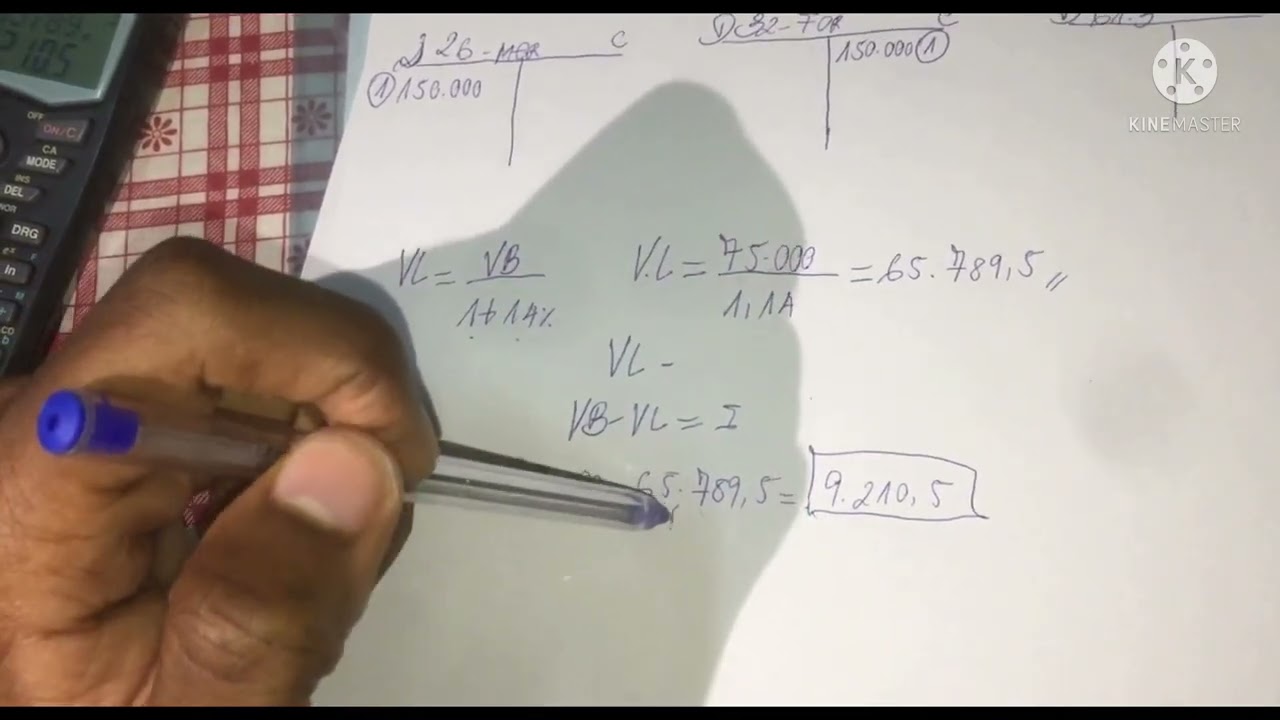 D 26-MER C
D 32-FOR C
①150.000
150.000①
KINEMASTER
VL = VB / 1+14%
V.L = 75.000 / 1,14 = 65.789,5 //
VL -
VB-VL = I
65.789,5 = 9.210,5
5105
OFF
ON/C
CA
MODE
INS
DEL
DRG
ln